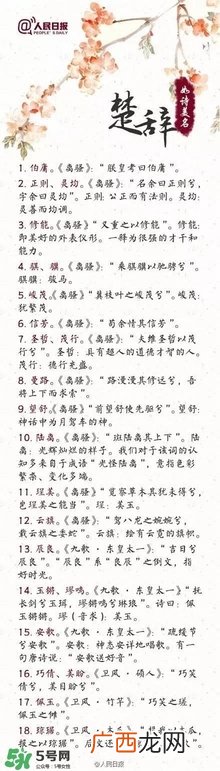 @人民日报
PEOPLE'S DAILY
如诗美名
楚辞
1. 伯庸。《离骚》:“朕皇考曰伯庸”。
2. 正则、灵均。《离骚》:“名余曰正则兮,
字余曰灵均”。正则:公正而有法则。灵均:
灵善而均调。
3. 修能。《离骚》:“又重之以修能”。修能:
即美好的外表仪形。一释为很强的才干和
能力。
4. 骐、骥。《离骚》:“乘骐骥以驰骋兮”。
骐骥:骏马。
5. 峻茂。《离骚》“冀枝叶之峻茂兮”。峻茂:
犹繁茂。
6. 信芳。《离骚》:“苟余情其信芳”。
7. 圣哲、茂行。《离骚》:“夫维圣哲以茂
行兮”。圣哲:具有超人的道德才智的人。
茂行:德行充盛。
8. 曼路。《离骚》:“路漫漫其修远兮,吾
将上下而求索”。
9. 望舒。《离骚》“前望舒使先驱兮”。望舒:
神话中为月驾车的神。
10. 陆离。《离骚》:“斑陆离其上下”。陆
离:光辉灿烂的样子。我们对于该词的认
知多来自于成语“光怪陆离”,意指色彩
繁杂、变化多端。
11. 珵美。《离骚》“览察草木其犹未得兮,
岂珵美之能当”。珵:美玉。
12. 云旗。《离骚》:“驾八龙之婉婉兮,
载云旗之委蛇”。云旗:绘有云霓的旗帜。
13. 辰良。《九歌·东皇太一》:“吉日兮
辰良”。“辰良”系“良辰”之倒文,指
好时光。
14. 玉锵、璆鸣。《九歌·东皇太一》“抚
长剑兮玉珥,璆锵鸣兮琳琅”。诗曰:佩
玉锵锵。璆(音求):美玉。
15. 安歌。《九歌·东皇太一》:“疏缓节
兮安歌”。安歌:神态安详地唱歌。有一
句唐诗说:“安歌送好音”。
16. 巧倩、美盼。《卫风·硕人》:“巧笑
倩兮,美目盼兮”。
17. 佩玉。《卫风·竹竿》:“巧笑之瑳,
佩玉之傩”。
18. 琼琚。《卫风·
报之以琼琚”。后文还
5号网
广西龙网
@人民日报